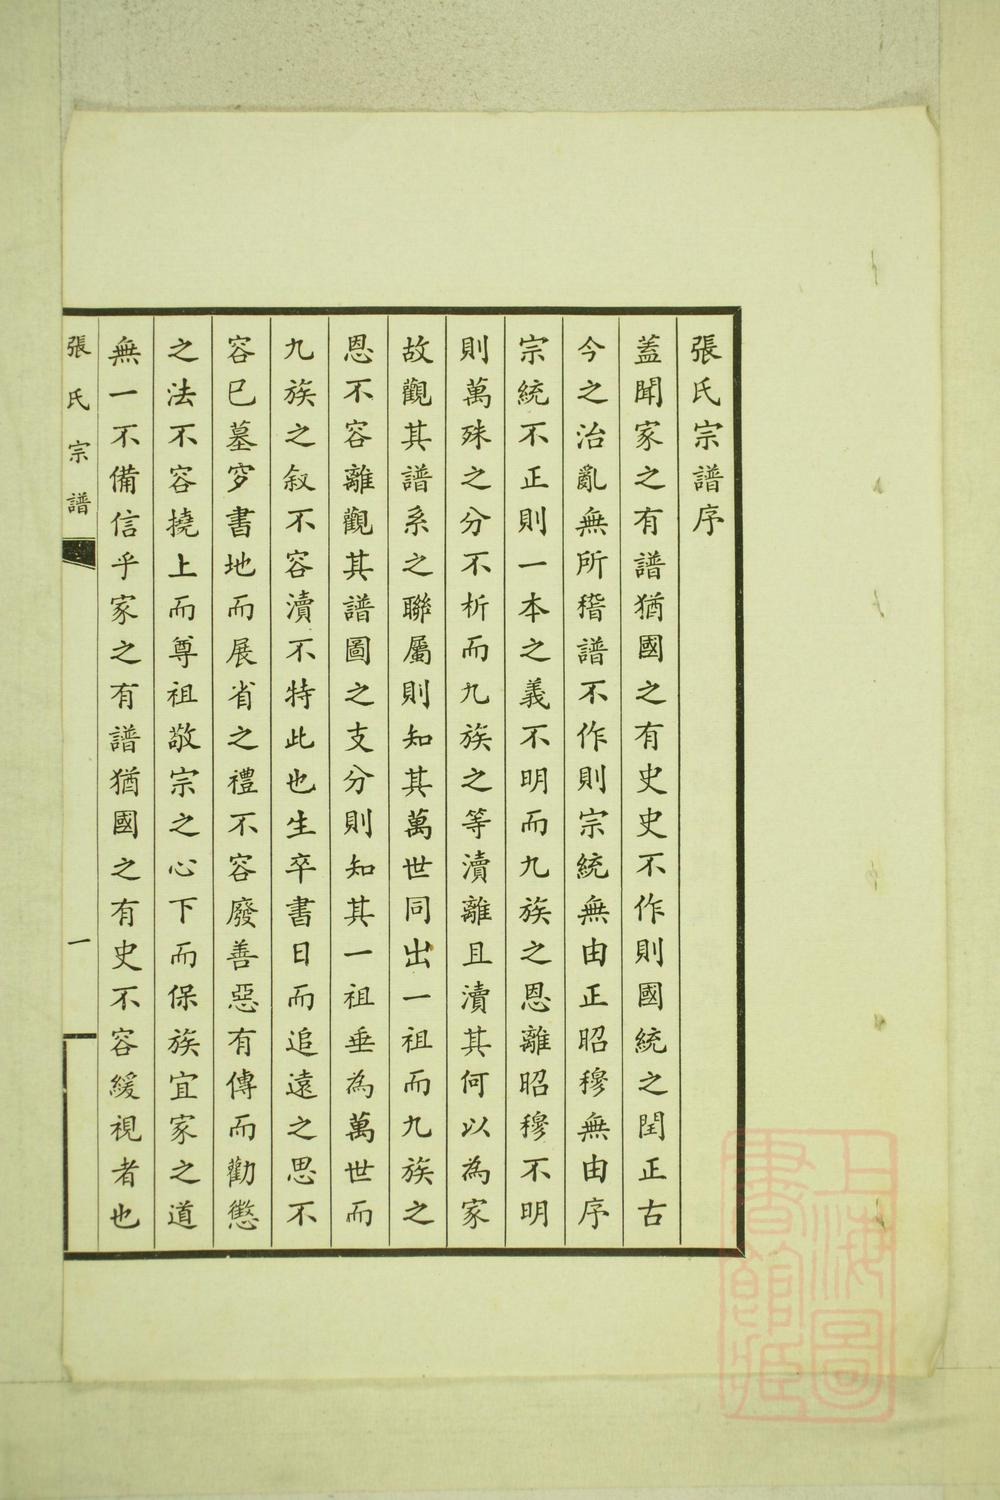 張氏宗譜序
蓋聞家之有譜猶國之有史史不作則國統之閏正古
今之治亂無所稽譜不作則宗統無由正昭穆無由序
宗統不正則一本之義不明而九族之恩離昭穆不明
則萬殊之分不析而九族之等瀆離且瀆其何以為家
故觀其譜系之聯屬則知其萬世同出一祖而九族之
恩不容離觀其譜圖之支分則知其一祖垂為萬世而
九族之叙不容瀆不特此也生卒書日而追遠之思不
容已墓穸書地而展省之禮不容廢善惡有傳而勸懲
之法不容撓上而尊祖敬宗之心下而保族宜家之道
無一不備信乎家之有譜猶國之有史不容緩視者也
張氏宗譜
一
上海圖
書館藏